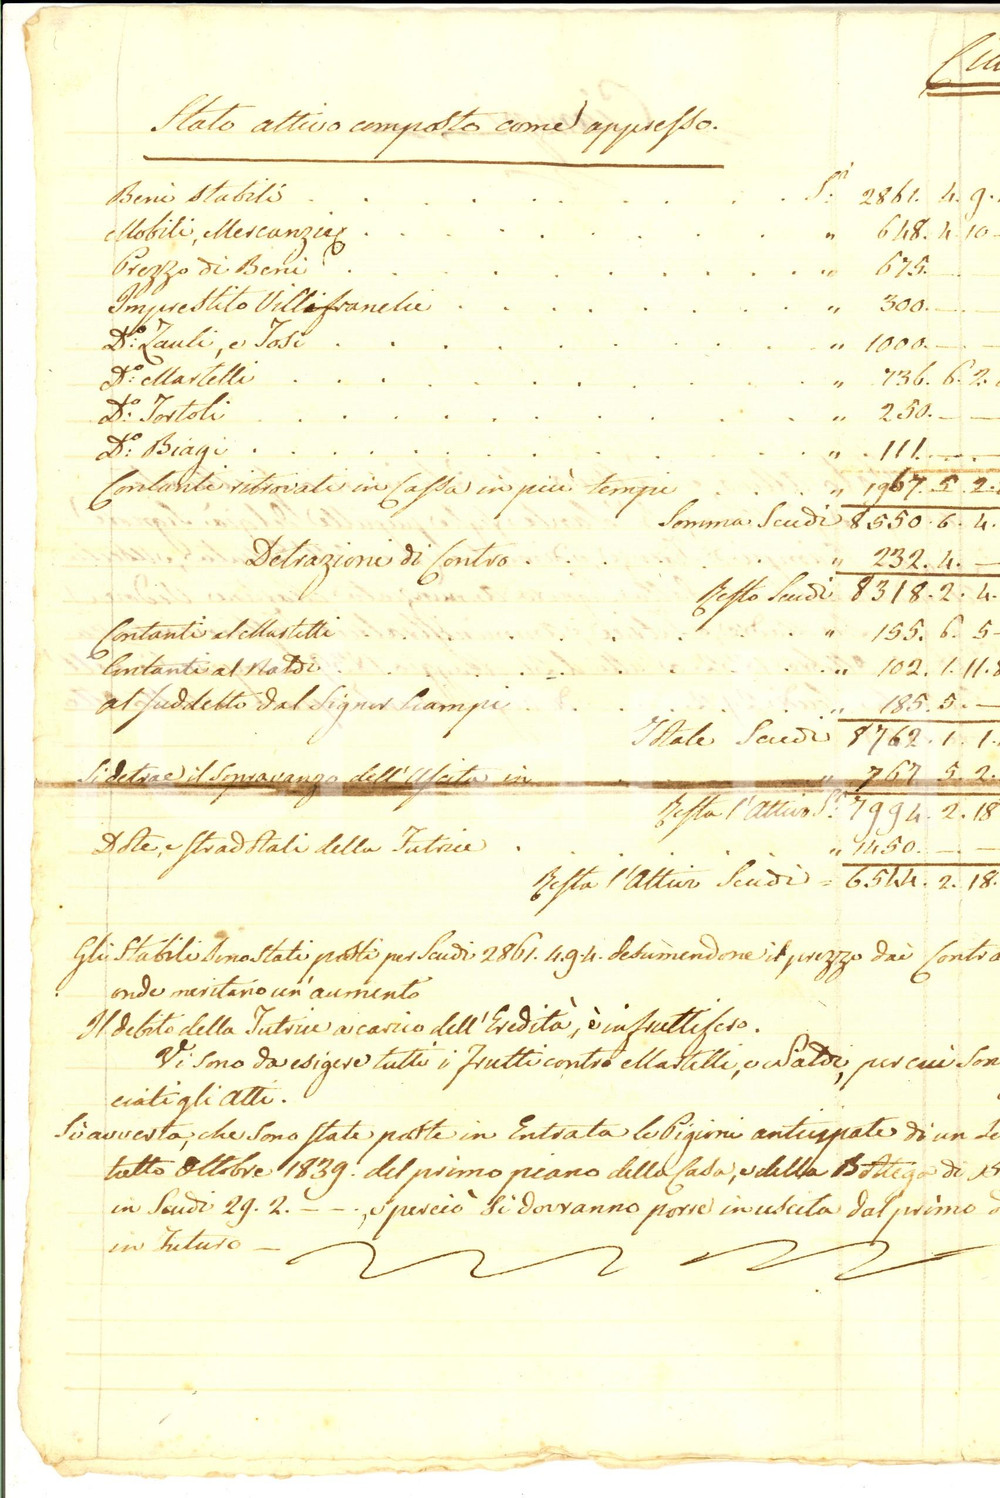 Stato attivo composto come appresso.
Beni stabili . . . . . . . S.di 2861. 4. 9.
Mobili, Mercanzie . . . . . . . " 648. 4. 10
Prezzo di Beni . . . . . . . " 675. — —
Imprestito Villifranchi . . . . . . . " 300. — —
D.o Zauli, e Tosi . . . . . . . " 1000. — —
D.o Martelli . . . . . . . " 736. 6. 2.
D.o Tortoli . . . . . . . " 250. — —
D.o Biagi . . . . . . . " 111. — —
Contanti ritrovati in Cassa in più tempi . . . " 1967. 5. 2.
Somma Scudi 8550. 6. 4.
Detrazioni di Contro . . . . . " 232. 4. —
Resto Scudi 8318. 2. 4.
Contanti al Martelli . . . . . . . " 155. 6. 5
Contanti al Naldi . . . . . . . " 102. 1. 11. 8
al suddetto dal Signor Ciampi . . . . . " 185. 5. —
Totale Scudi 8762. 1. 1.
Si detrae il Sopravanzo dell'Ascita in . . . " 767 5. 2.
Resta l'Attivo S.di 7994. 2. 18
Dote, e stradotali della Tutrice . . . . . " 1450. — —
Resta l'Attivo Scudi = 6544. 2. 18.
Gli Stabili sono stati posti per Scudi 2861. 4. 9. 4. desumendone il prezzo dai Contra
onde meritano un'aumento
Il debito della Tutrice a carico dell'Eredità, è infruttifero.
Vi sono da esigere tutti i frutti contro Martelli, e Naldi, per cui son
ciati gli Atti.
Si avverta, che sono state poste in Entrata le Pigioni anticipate di un Se
tutto Ottobre 1839. del primo piano della Casa, e della Bottega di
in Scudi 29. 2. — —., e perciò si dovranno porre in uscita dal primo
in futuro —